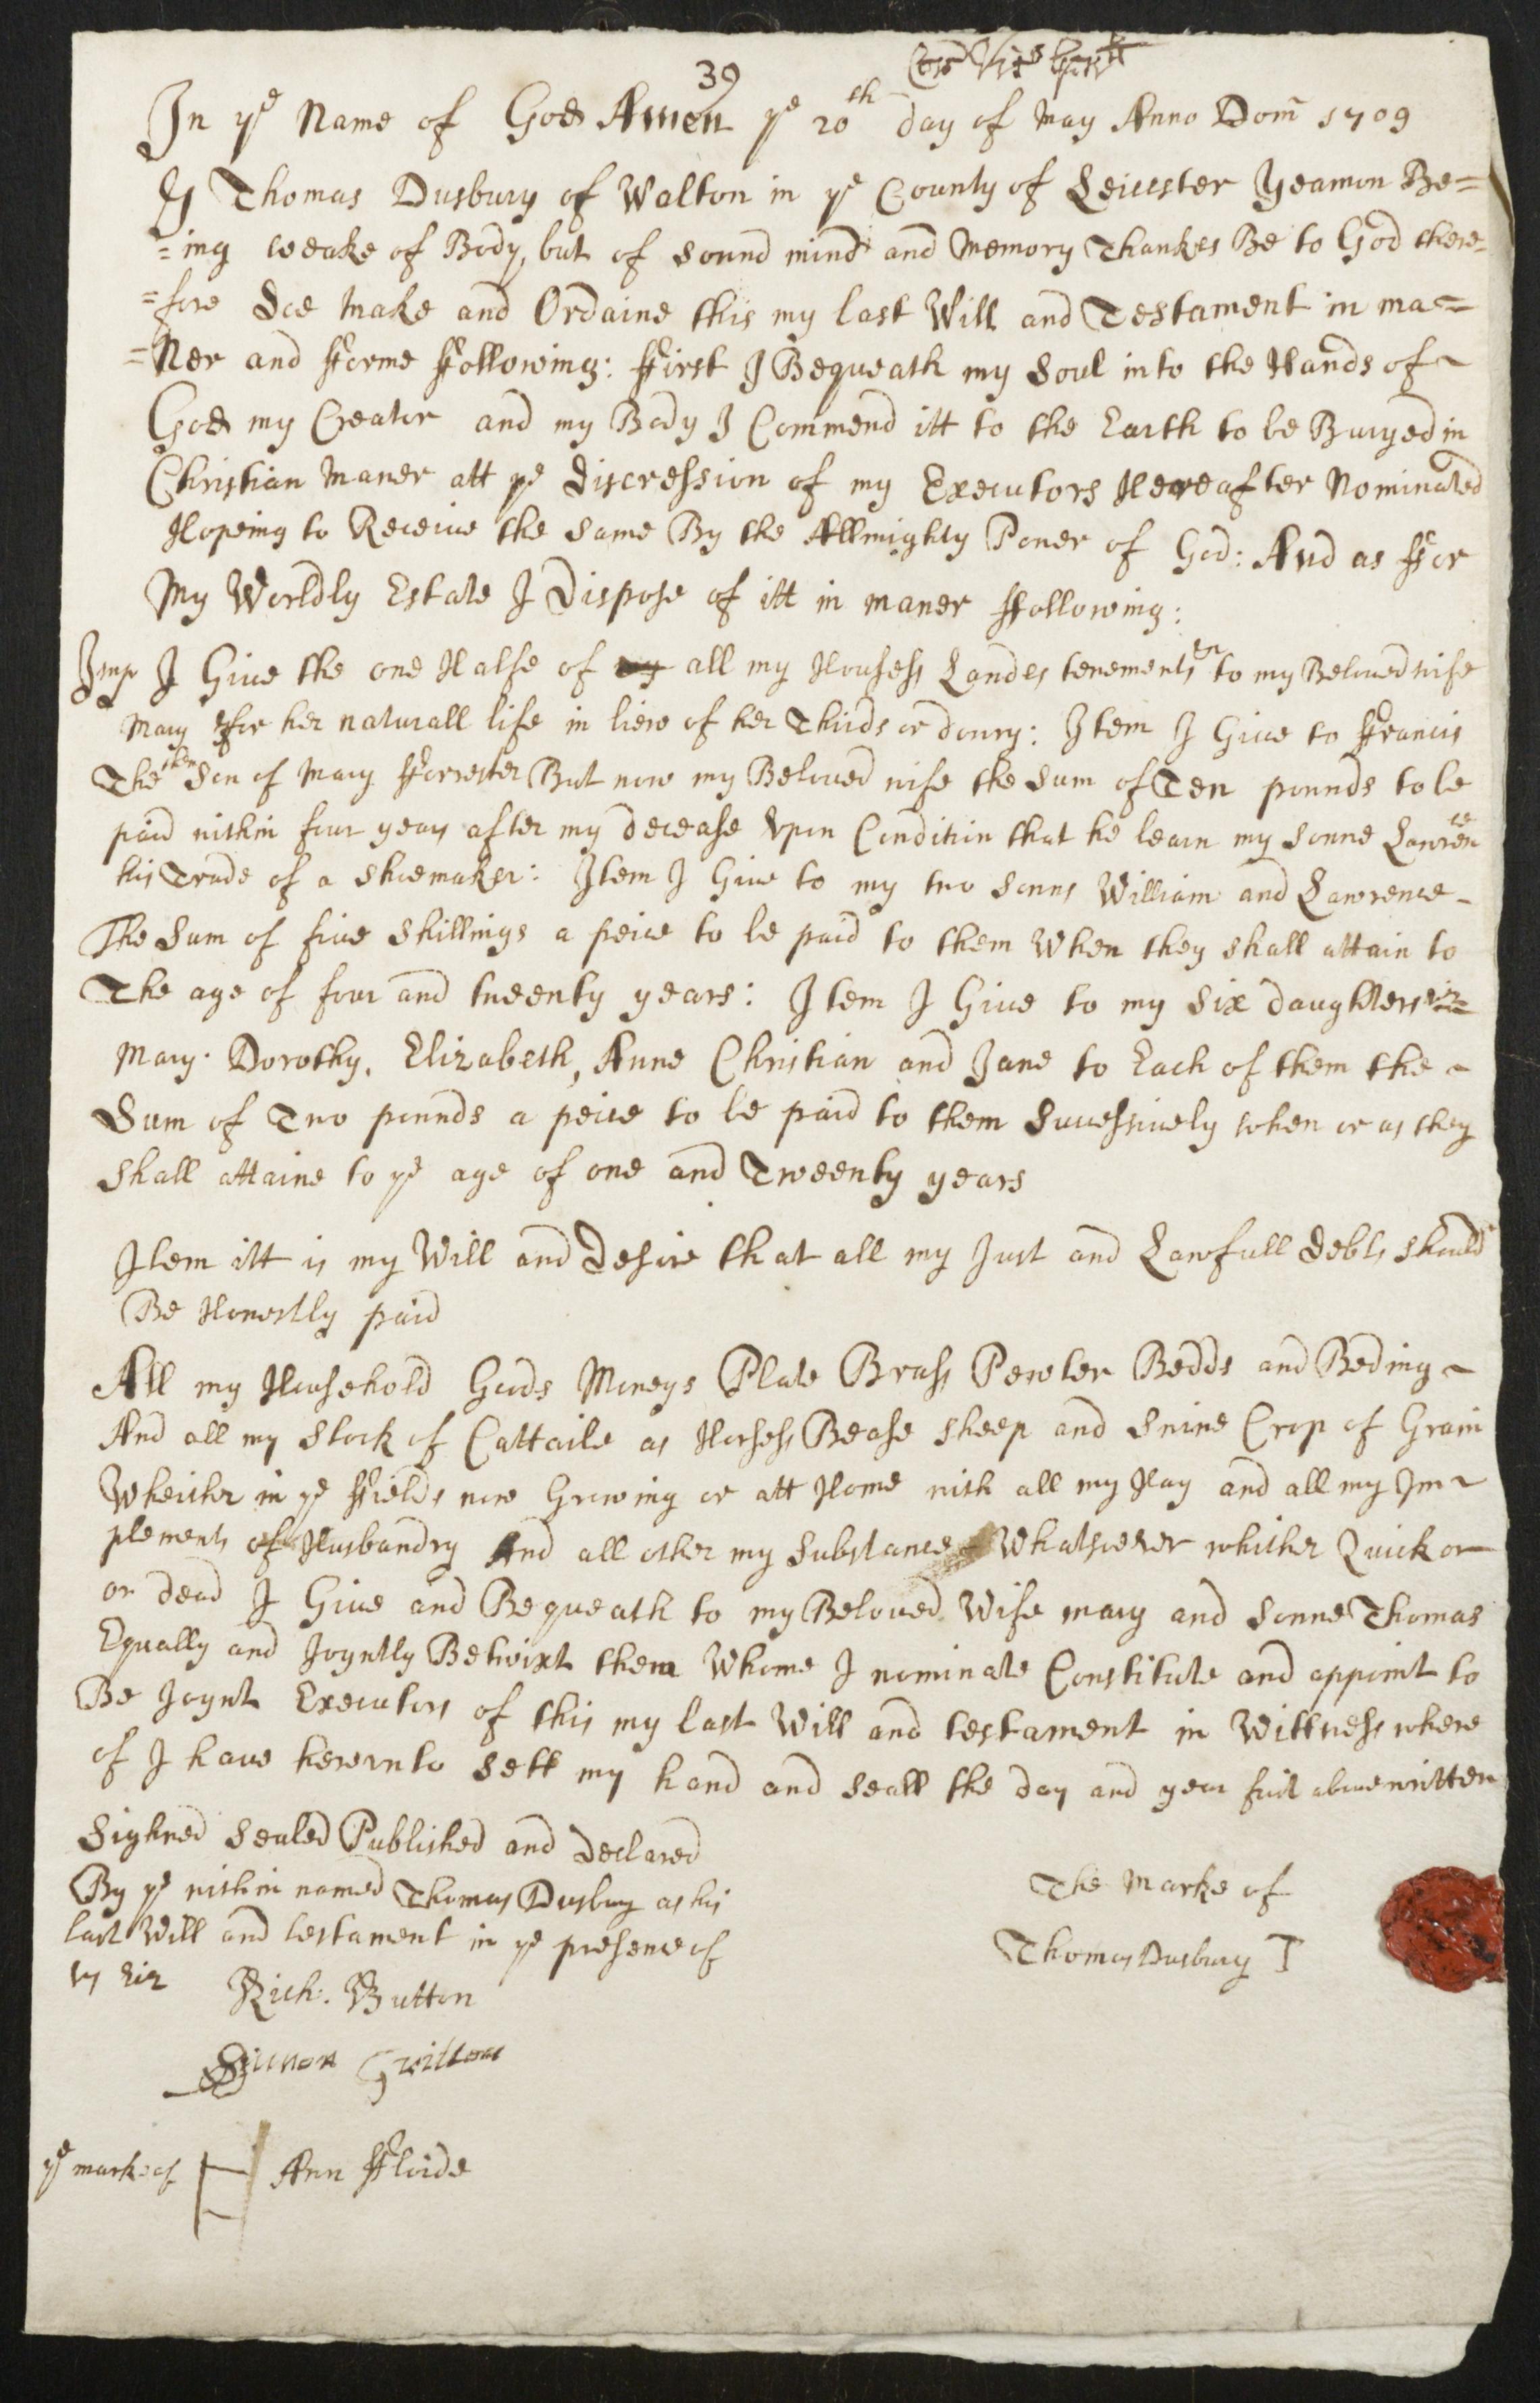 39
In ye Name of God Amen ye 20th day of May Anno Dom 1709
I Thomas Dusbury of Walton in ye County of Leicester Yeamon Be=
=ing weake of Body, but of sound mind and Memory Thankes Be to God there=
=fore Doe make and Ordaine this my last Will and Testament in ma=
=Ner and fforme ffollowing: ffirst I Bequeath my Soul into the Hands of
God my Creator and my Body I Commend itt to the Earth to be Buryed in
Christian Maner att ye discression of my Executors Hereafter Nominated
Hopeing to Receive the same By the Allmighty Power of God: And as ffor
My Worldly Estate I Dispose of itt in maner ffollowing:
Imp I Give the one Halfe of my all my Housess Landes tenements to my Beloved wife
Mary for her naturall life in liew of her Thirds or dowry: Item I Give to ffrancis
The then Son of Mary fforrester But now my Beloved wife the Sum of Ten pounds to be
paid within four years after my decease Vpon Condition that he learn my Sonne Lawrence
his Trade of a Shoemaker: Item I Give to my two Sonns William and Lawrence
The Sum of five Shillings a peice to be paid to them When they shall attain to
The age of four and tweenty years: Item I Give to my Six daughters viz
Mary. Dorothy, Elizabeth, Anne Christian and Jane to Each of them the
Sum of Two pounds a peice to be paid to them Successively when or as they
Shall attaine to ye age of one and Tweenty years
Item itt is my Will and Desire that all my Just and Lawfull debts should
Be Honestly paid
All my Household Goods Moneys Plate Brass Pewter Bedds and Beding
And all my Stock of Cattaile as Horsess Bease sheep and Swine Crop of Grain
Wheither in ye ffields now Growing or att Home with all my Hay and all my Im
plements of Husbandry And all other my Substance Whatsoever whither Quick or
or dead I Give and Bequeath to my Beloved Wife mary and Sonne Thomas
Equally and Joyntly Betwixt them Whome I nominate Constitute and appoint to
Be Joynt Executors of this my last Will and testament in Wittness where
of I have herevnto Sett my hand and seall the day and year first above written
Sighned Sealed Published and Declared
By ye within named Thomas Dusbury as his
last Will and testament in ye presence of
vs viz
Rich: Button
Simon
ye marke of Ann ffloide
The Marke of
Thomas Dusbury T